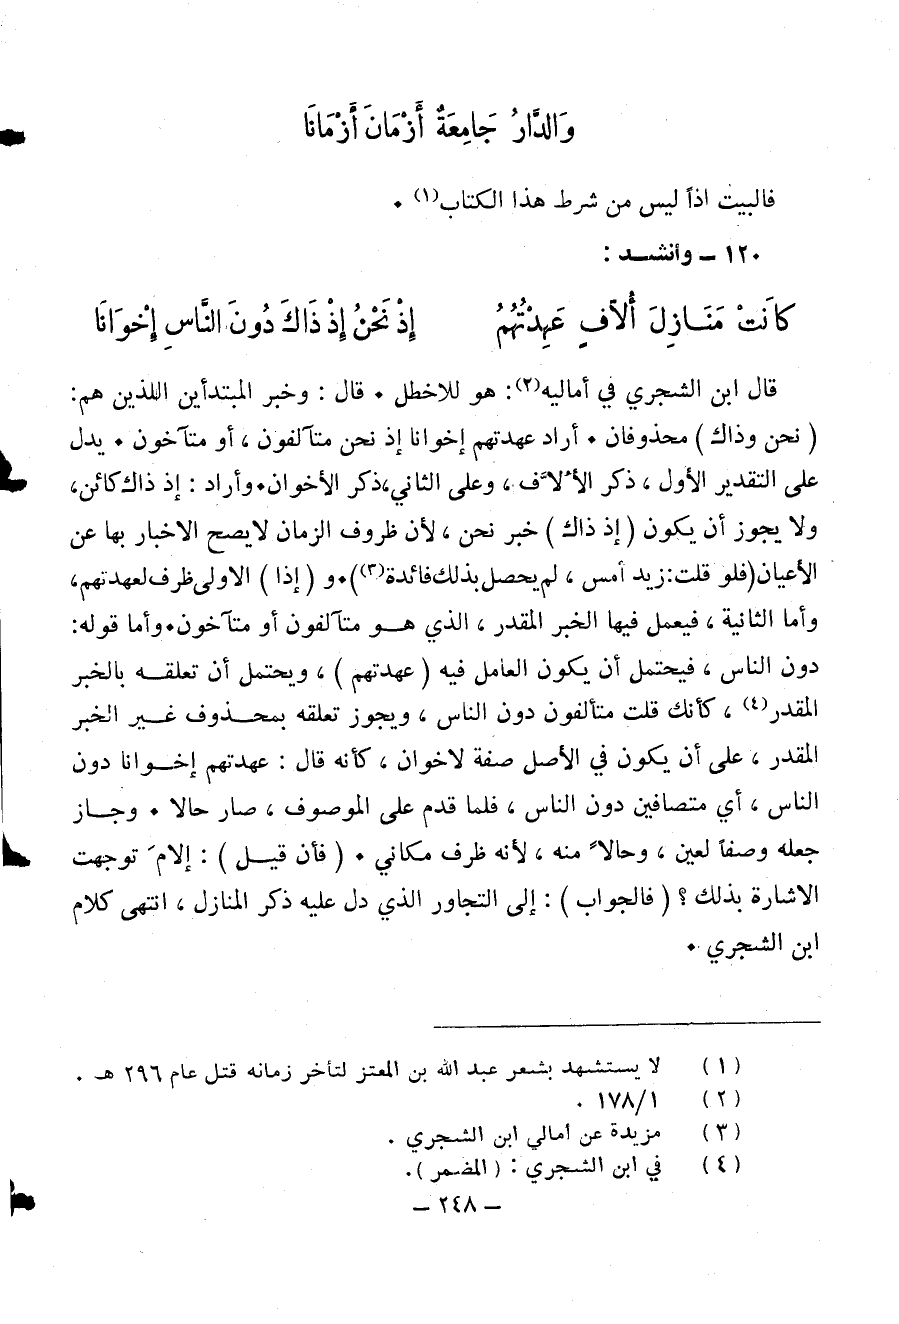 وَالدَّارُ جَامِعَةٌ أَزْمَانَ أَزْمَانَا
فالبيت اذاً ليس من شرط هذا الكتاب(١) ٠
١٢٠ – وأنشـــد :
كَانَتْ مَنَـازِلَ أُلاَّفٍ عَهِدْتُهُمُ إِذْ نَحْنُ إِذْ ذَاكَ دُونَ النَّاسِ إِخْوَانَا
قال ابن الشجري في أماليه(٢): هو للاخطل ٠ قال : وخبر المبتدأين اللذين هم:
( نحن وذاك ) محذوفان ٠ أراد عهدتهم إخوانا إذ نحن متآلفون ، أو متآخون ٠ يدل
على التقدير الأول ، ذكر الأُلاَّف ، وعلى الثاني،ذكر الأخوان٠وأراد : إذ ذاك كائن،
ولا يجوز أن يكون ( إذ ذاك ) خبر نحن ، لأن ظروف الزمان لايصح الاخبار بها عن
الأعيان(فلو قلت:زيد أمس ، لم يحصل بذلك فائدة(٣))٠و ( إذا ) الاولى ظرف لعهدتهم،
وأما الثانية ، فيعمل فيها الخبر المقدر ، الذي هــو متآلفون أو متآخون٠وأما قوله:
دون الناس ، فيحتمل أن يكون العامل فيه ( عهدتهم ) ، ويحتمل أن تعلقــه بالخبر
المقدر(٤) ، كأنك قلت متألفون دون الناس ، ويجوز تعلقه بمحـذوف غــير الخبر
المقدر ، على أن يكون في الأصل صفة لاخوان ، كأنه قال : عهدتهم إخــوانا دون
الناس ، أي متصافين دون الناس ، فلما قدم على الموصوف ، صار حالا ٠ وجــاز
جعله وصفاً لعين ، وحالاً منه ، لأنه ظرف مكاني ٠ ( فأن قيــل ) : إلامَ توجهت
الاشارة بذلك ؟ ( فالجواب ) : إلى التجاور الذي دل عليه ذكر المنازل ، انتهى كلام
ابن الشجري ٠
(١) لا يستشهد بشعر عبد الله بن المعتز لتأخر زمانه قتل عام ٢٩٦ هـ .
(٢) ١٧٨/١ .
(٣) مزيدة عن أمالي ابن الشجري .
(٤) في ابن الشجري : ( المضمر ).
– ٢٤٨ –